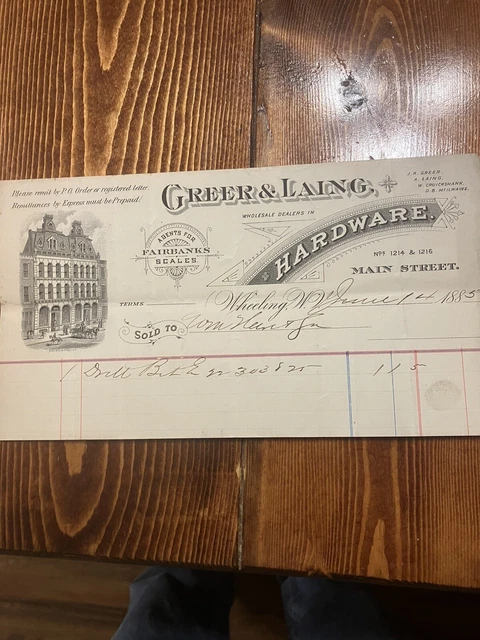 Please remit by P.O. Order or registered letter.
Remittances by Express must be Prepaid.
GREER & LAING,
J.R. GREER.
A. LAING.
W. CRUICKSHANK.
D.B. McILWAINE.
WHOLESALE DEALERS IN
HARDWARE.
AGENTS FOR
FAIRBANKS
SCALES.
Nos 1214 & 1216
MAIN STREET.
TERMS
Wheeling, W.V. June 14 1883
SOLD TO Wm
1 Drill Bit 22 303 & 25 1 15